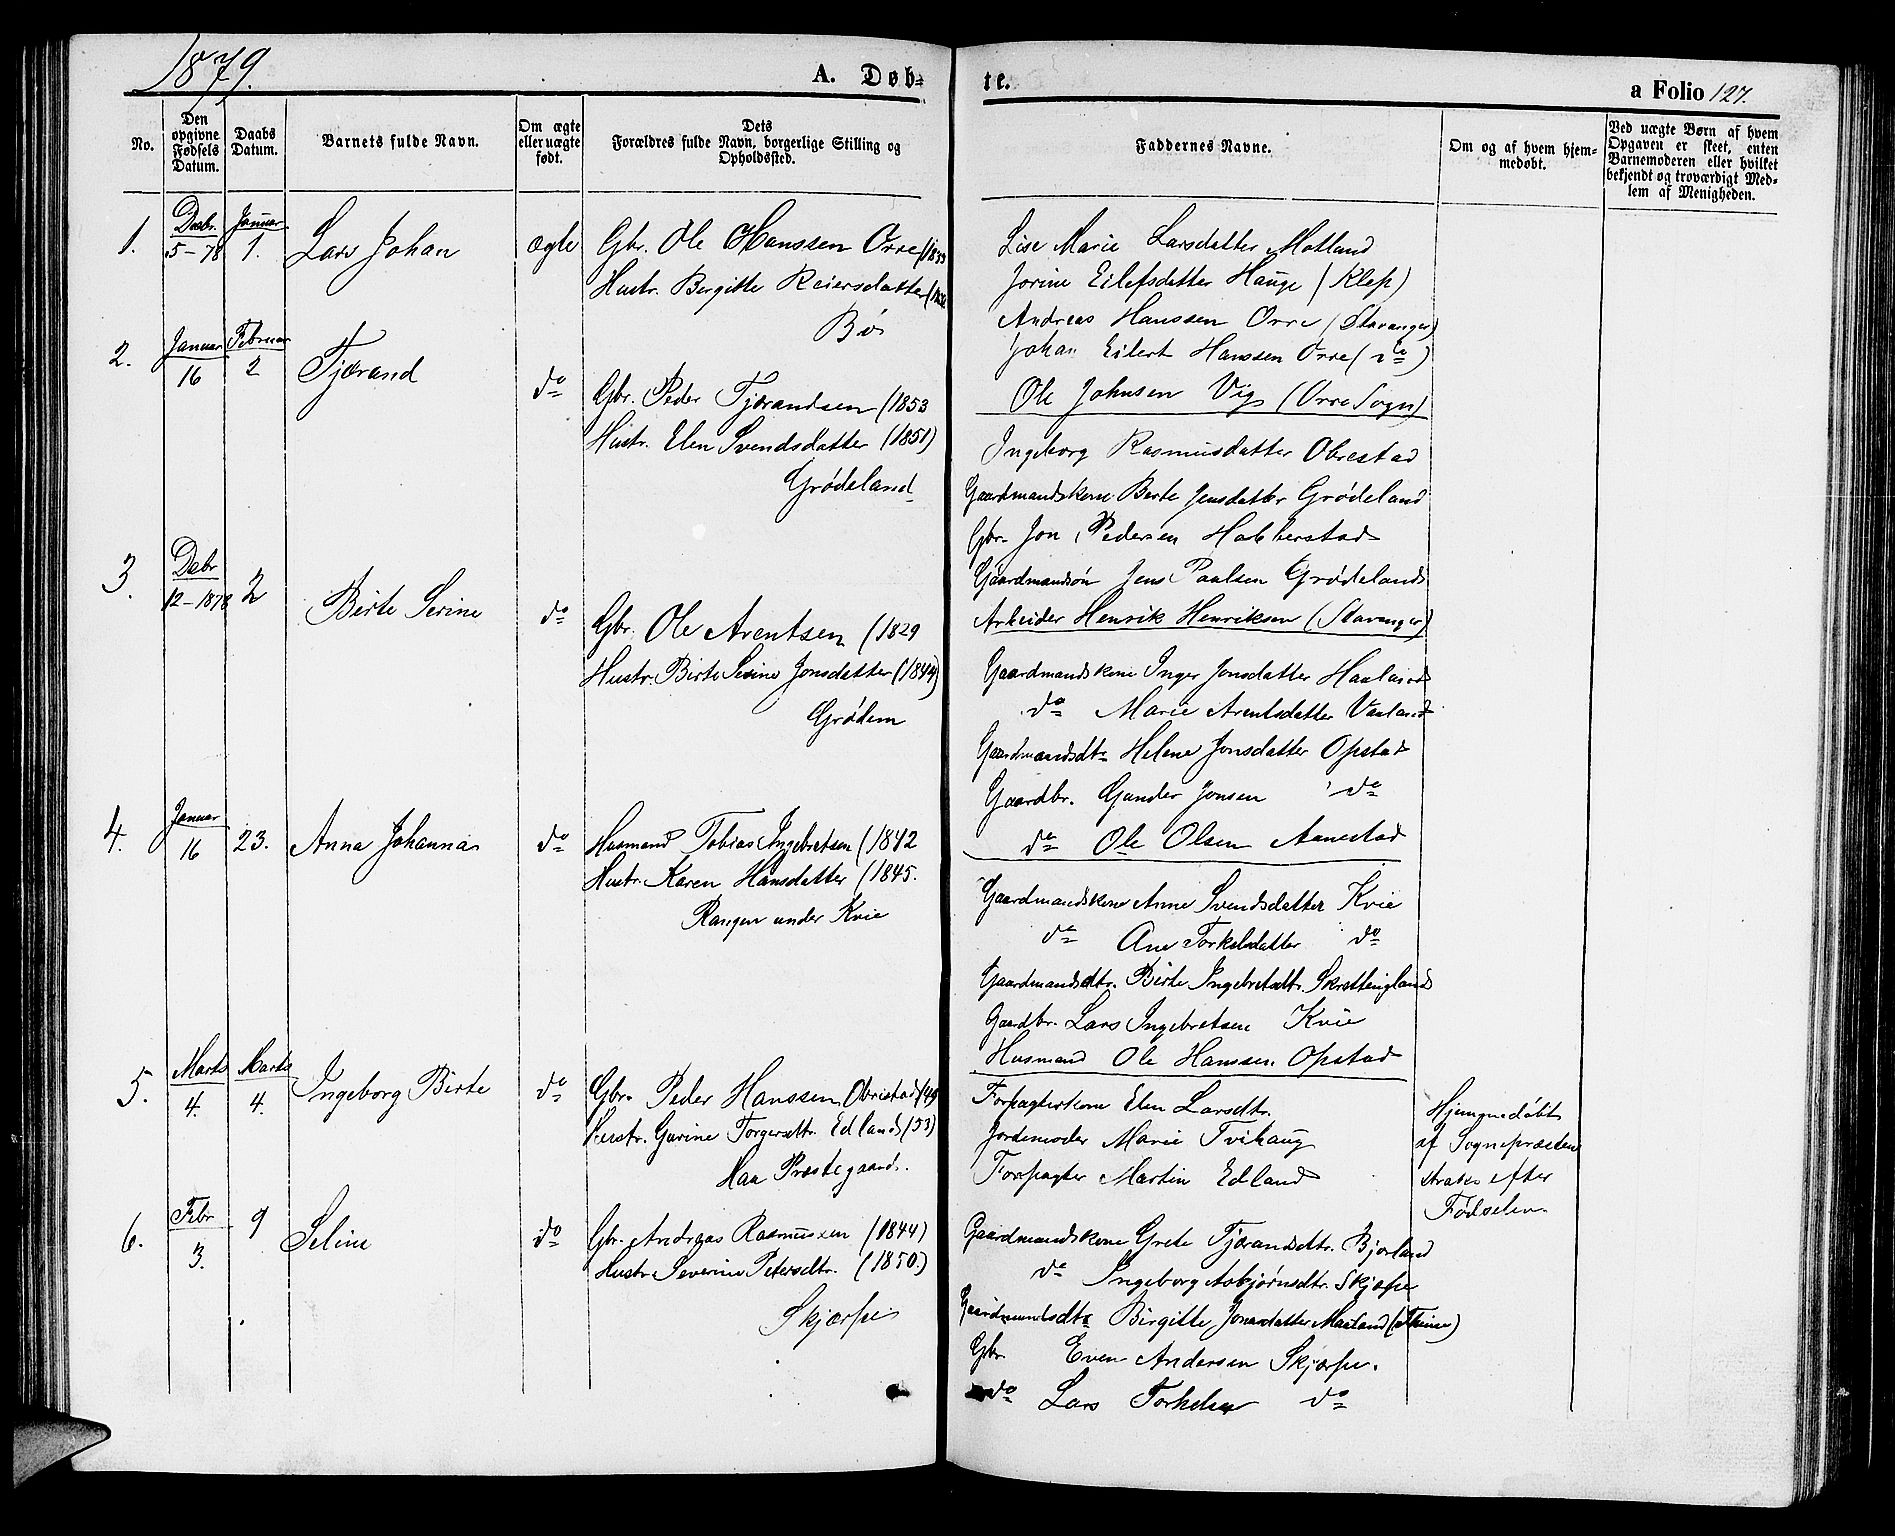 1879.
A. Døb-
te.
a Folio 127.
No.
Den opgivne Fødsels Datum.
Daabs Datum.
Barnets fulde Navn.
Om ægte eller uægte født.
Dets Forældres fulde Navn, borgerlige Stilling og Opholdssted.
Faddernes Navne.
Om og af hvem hjem-
medøbt.
Ved uægte Børn af hvem
Opgaven er skeet, enten
Barnemoderen eller hvilket
bekjendt og troværdigt Med-
lem af Menigheden.
1.
Decbr. 5-78
Januar 1.
Lars Johan
ægte
Gbr. Ole Hanssen Orre
Hustr. Bergitte Reiersdatter
Bø
Lise Marie Larsdatter Motland
Jorine Eilefsdatter Hauge (Klep)
Andreas Hanssen Orre (Stavanger)
Johan Eilert Hanssen Orre (do)
Ole Johnsen Vig (Orre Sogn)
2.
Januar 16
Februar 2
Tjærand
do
Gbr. Peder Tjærandsen (1853
Hustr. Elen Svendsdatter (1851)
Grødeland
Ingeborg Rasmusdatter Obrestad
Gaardmandskone Berte Jensdatter Grødeland
Gbr. Jon Pedersen Habberstad
Gaardmandsøn Jens Paulsen Grødeland
Arbeider Henrik Henriksen (Stavanger)
3.
Decbr 12-1878
2
Berte Serine
do
Gbr. Ole Arentsen (1829
Hustr. Berte Serine Jonsdatter (1844)
Grødem
Gaardmandskone Inger Jonsdatter Haaland
do Marie Arentsdatter Varland
Gaardmandsdtr Helene Jonsdatter Opstad
Gaardbr. Gunder Jonsen do
do Ole Olsen Aanestad
4.
Januar 16
23.
Anna Johanna
do
Husmand Tobias Ingebretsen (1842
Hustr. Karen Hansdatter (1845.
Rangen under Kvie
Gaardmandskone Anne Svendsdatter Kvie
do Ane Torkelsdatter do
Gaardmandsdtr. Berte Ingebretsdtr. Skrettingland
Gaardbr. Lars Ingebretsen Kvie
Husmand Ole Hanssen Opstad
5.
Marts 4.
Marts 4.
Ingeborg Berte
do
Gbr. Peder Hanssen Obrestad (49
Hustr. Gurine Torgersdtr. Edland (53)
Haa Præstegaard.
Forpagterkone Elen Larsdtr.
Jordemoder Marie Tvihaug
Forpagter Martin Edland
Hjemmedøbt
af Sognepræsten
strax efter
Fødselen
6.
Febr 3.
9
Seline
do
Gbr. Andreas Rasmussen (1844)
Hustr. Severine Petersdtr. (1850.)
Skjærpe
Gaardmandskone Grete Tjærandsdtr. Bjorland
do Ingeborg Asbjørnsdtr. Skjærpe
Gaardmandsdtr Birgitte Jonasdatter Maaland (Thime)
Gbr. Even Andersen Skjærpe.
do Lars Torkelsen do